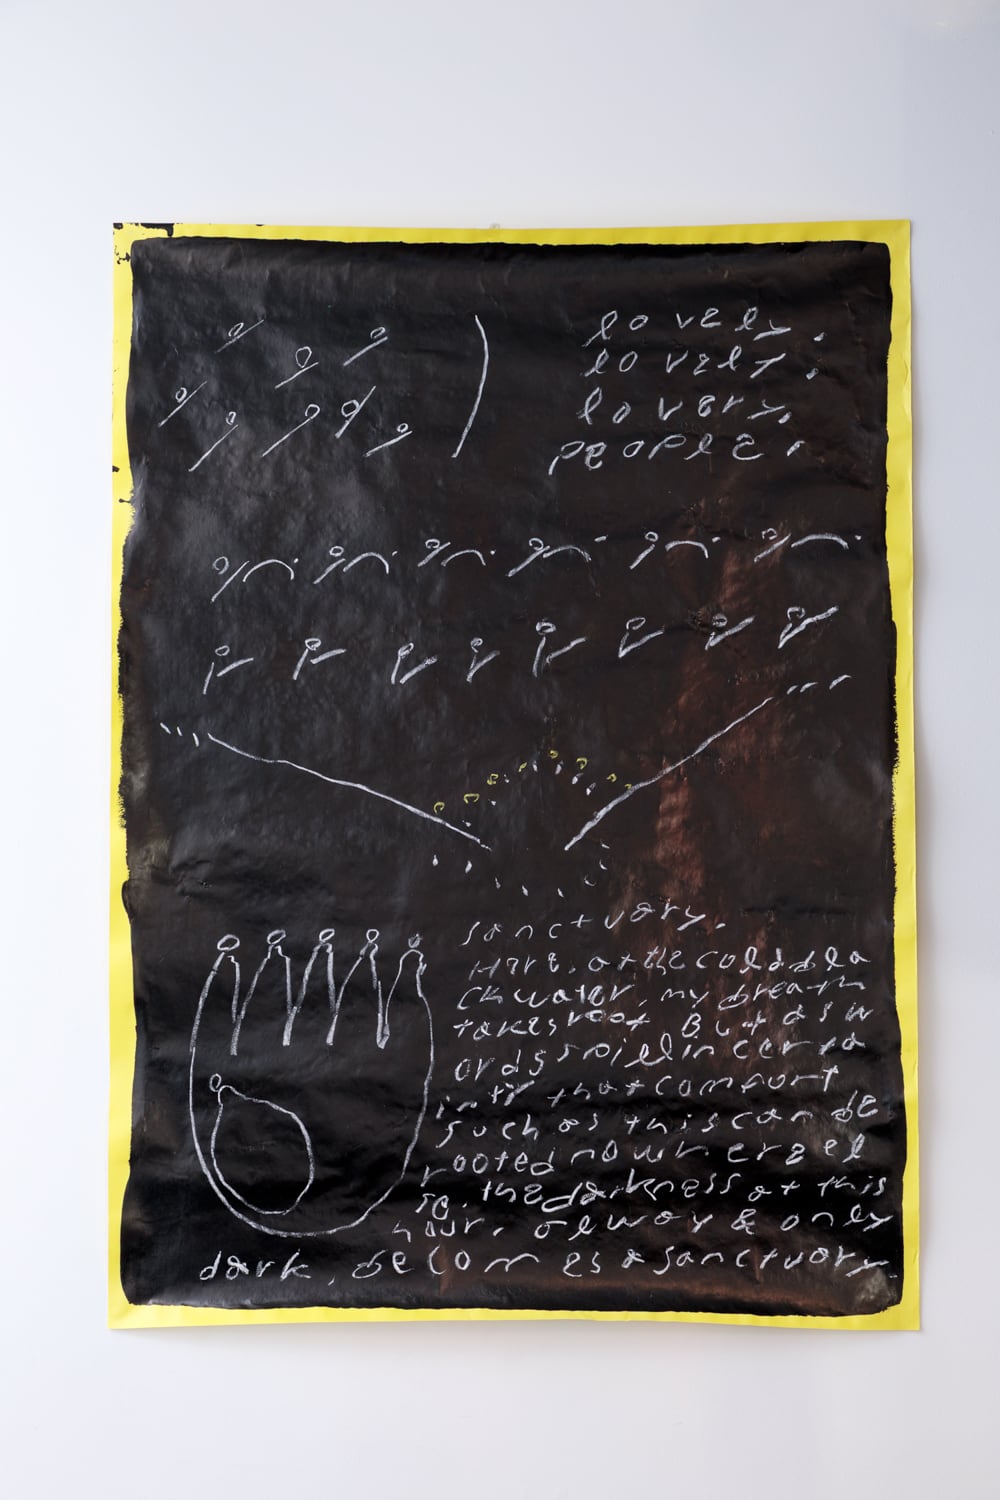 lovely,
lovely,
lovery,
people,
sanctuary.
Here, at the cold bla
ck water, my breath
takes root. But as w
ords spill in certa
inty that comfort
such as this can be
rooted nowhere el
se. the darkness at this
hour, alway & only
dark, becomes a sanctuary.